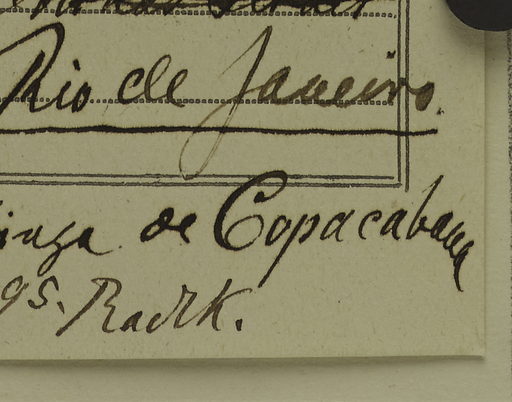 Rio de Janeiro.
de Copacabana
gs. Radlk.